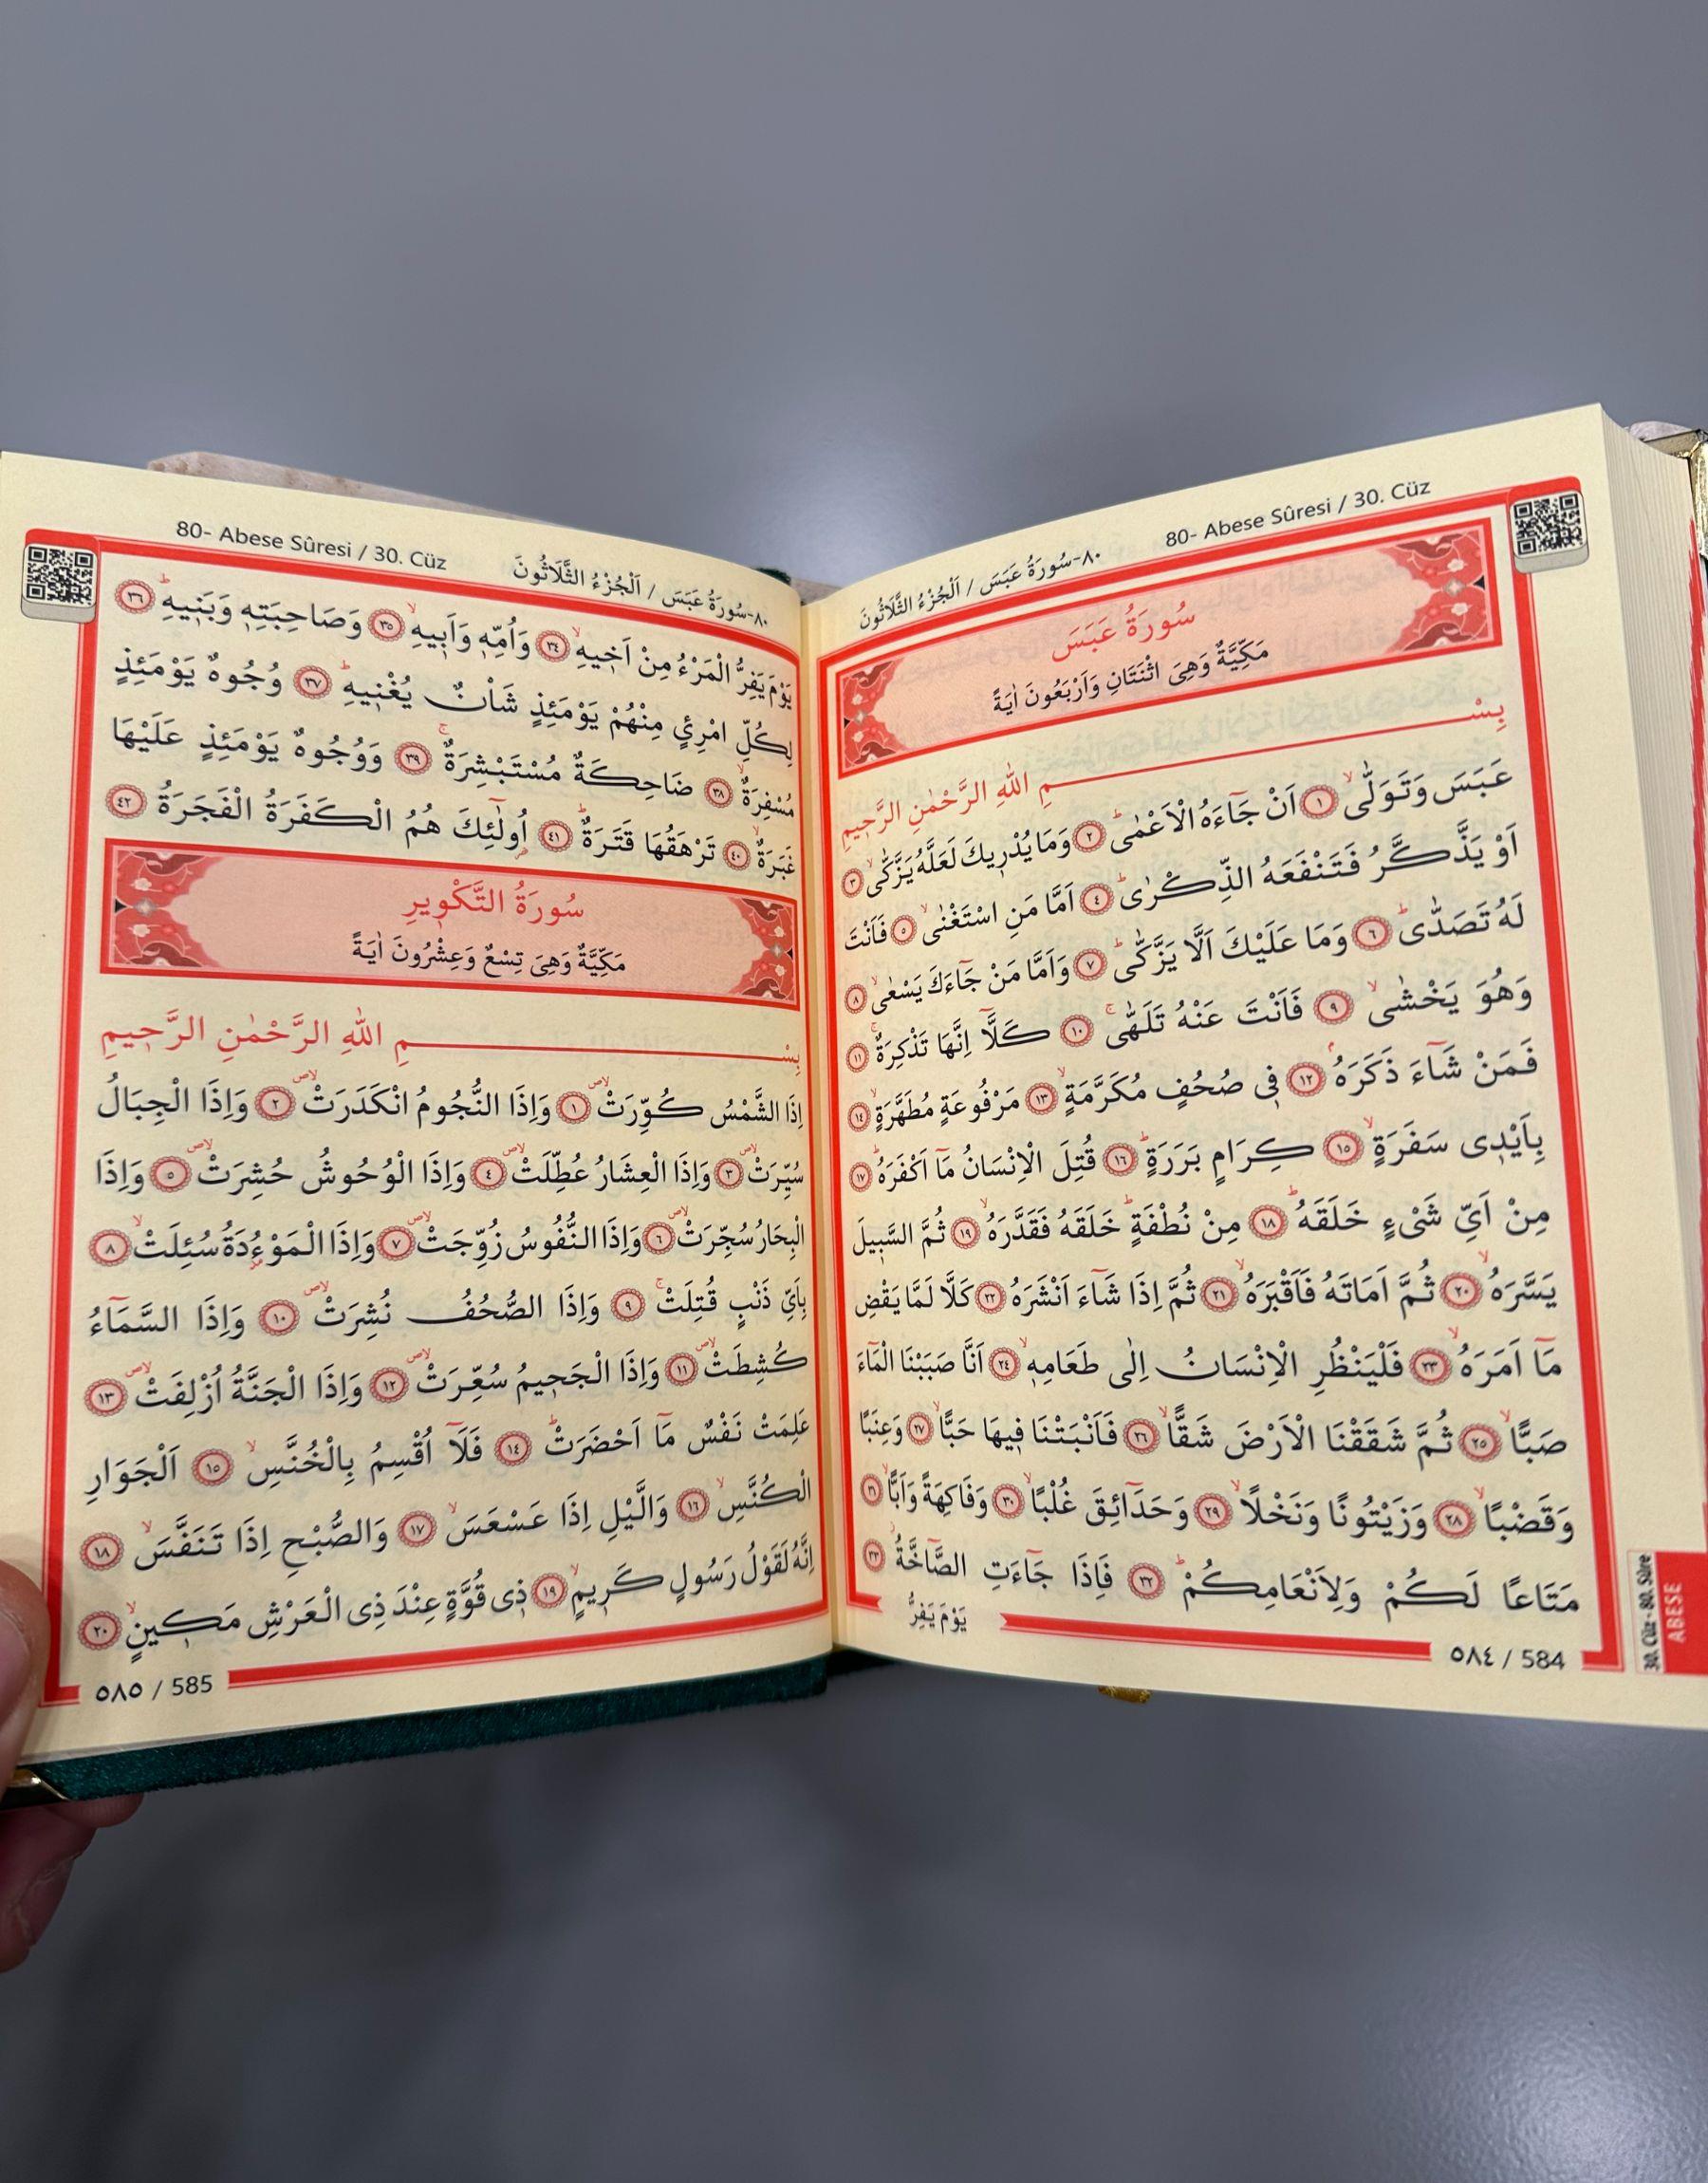 80- Abese Sûresi / 30. Cüz
٨٠-سُورَةُ عَبَسَ / اَلْجُزْءُ الثَّلَاثُونَ
سُورَةُ عَبَسَ
مَكِّيَّةٌ وَهِىَ اثْنَتَانِ وَاَرْبَعُونَ اٰيَةً
بِسْـــمِ اللّٰهِ الرَّحْمٰنِ الرَّحٖيمِ
عَبَسَ وَتَوَلّٰىۙ ١ اَنْ جَٓاءَهُ الْاَعْمٰىؕ ٢ وَمَا يُدْرٖيكَ لَعَلَّهُ يَزَّكّٰىۙ ٣
اَوْ يَذَّكَّرُ فَتَنْفَعَهُ الذِّكْرٰىؕ ٤ اَمَّا مَنِ اسْتَغْنٰىۙ ٥ فَاَنْتَ
لَهُ تَصَدّٰىؕ ٦ وَمَا عَلَيْكَ اَلَّا يَزَّكّٰىؕ ٧ وَاَمَّا مَنْ جَٓاءَكَ يَسْعٰىۙ ٨
وَهُوَ يَخْشٰىۙ ٩ فَاَنْتَ عَنْهُ تَلَهّٰىۚ ١٠ كَلَّٓا اِنَّهَا تَذْكِرَةٌۚ ١١
فَمَنْ شَٓاءَ ذَكَرَهُۢ ١٢ فٖى صُحُفٍ مُكَرَّمَةٍۙ ١٣ مَرْفُوعَةٍ مُطَهَّرَةٍۙ ١٤
بِاَيْدٖى سَفَرَةٍۙ ١٥ كِرَامٍ بَرَرَةٍؕ ١٦ قُتِلَ الْاِنْسَانُ مَٓا اَكْفَرَهُؕ ١٧
مِنْ اَىِّ شَىْءٍ خَلَقَهُؕ ١٨ مِنْ نُطْفَةٍؕ خَلَقَهُ فَقَدَّرَهُۙ ١٩ ثُمَّ السَّبٖيلَ
يَسَّرَهُۙ ٢٠ ثُمَّ اَمَاتَهُ فَاَقْبَرَهُۙ ٢١ ثُمَّ اِذَا شَٓاءَ اَنْشَرَهُ ٢٢ كَلَّا لَمَّا يَقْضِ
مَٓا اَمَرَهُۙ ٢٣ فَلْيَنْظُرِ الْاِنْسَانُ اِلٰى طَعَامِهٖۙ ٢٤ اَنَّا صَبَبْنَا الْمَٓاءَ
صَبًّاۙ ٢٥ ثُمَّ شَقَقْنَا الْاَرْضَ شَقًّاۙ ٢٦ فَاَنْبَتْنَا فٖيهَا حَبًّاۙ ٢٧ وَعِنَبًا
وَقَضْبًاۙ ٢٨ وَزَيْتُونًا وَنَخْلًاۙ ٢٩ وَحَدَٓائِقَ غُلْبًاۙ ٣٠ وَفَاكِهَةً وَاَبًّاۙ ٣١
مَتَاعًا لَكُمْ وَلِاَنْعَامِكُمْؕ ٣٢ فَاِذَا جَٓاءَتِ الصَّٓاخَّةُۙ ٣٣
يَوْمَ يَفِرُّ
٥٨٤ / 584
30. Cüz - 80. Sûre
ABESE
80- Abese Sûresi / 30. Cüz
٨٠-سُورَةُ عَبَسَ / اَلْجُزْءُ الثَّلَاثُونَ
يَوْمَ يَفِرُّ الْمَرْءُ مِنْ اَخٖيهِۙ ٣٤ وَاُمِّهٖ وَاَبٖيهِۙ ٣٥ وَصَاحِبَتِهٖ وَبَنٖيهِؕ ٣٦
لِكُلِّ امْرِئٍ مِنْهُمْ يَوْمَئِذٍ شَاْنٌ يُغْنٖيهِؕ ٣٧ وُجُوهٌ يَوْمَئِذٍ
مُسْفِرَةٌۙ ٣٨ ضَاحِكَةٌ مُسْتَبْشِرَةٌۚ ٣٩ وَوُجُوهٌ يَوْمَئِذٍ عَلَيْهَا
غَبَرَةٌۙ ٤٠ تَرْهَقُهَا قَتَرَةٌؕ ٤١ اُولٰٓئِكَ هُمُ الْكَفَرَةُ الْفَجَرَةُ ٤٢
سُورَةُ التَّكْوٖيرِ
مَكِّيَّةٌ وَهِىَ تِسْعٌ وَعِشْرُونَ اٰيَةً
بِسْـــمِ اللّٰهِ الرَّحْمٰنِ الرَّحٖيمِ
اِذَا الشَّمْسُ كُوِّرَتْۙ ١ وَاِذَا النُّجُومُ انْكَدَرَتْۙ ٢ وَاِذَا الْجِبَالُ
سُيِّرَتْۙ ٣ وَاِذَا الْعِشَارُ عُطِّلَتْۙ ٤ وَاِذَا الْوُحُوشُ حُشِرَتْۙ ٥ وَاِذَا
الْبِحَارُ سُجِّرَتْۙ ٦ وَاِذَا النُّفُوسُ زُوِّجَتْۙ ٧ وَاِذَا الْمَوْءُدَةُ سُئِلَتْۙ ٨
بِاَىِّ ذَنْبٍ قُتِلَتْۚ ٩ وَاِذَا الصُّحُفُ نُشِرَتْۙ ١٠ وَاِذَا السَّمَٓاءُ
كُشِطَتْۙ ١١ وَاِذَا الْجَحٖيمُ سُعِّرَتْۙ ١٢ وَاِذَا الْجَنَّةُ اُزْلِفَتْۙ ١٣
عَلِمَتْ نَفْسٌ مَٓا اَحْضَرَتْؕ ١٤ فَلَٓا اُقْسِمُ بِالْخُنَّسِۙ ١٥ اَلْجَوَارِ
الْكُنَّسِۙ ١٦ وَالَّيْلِ اِذَا عَسْعَسَۙ ١٧ وَالصُّبْحِ اِذَا تَنَفَّسَۙ ١٨
اِنَّهُ لَقَوْلُ رَسُولٍ كَرٖيمٍۙ ١٩ ذٖى قُوَّةٍ عِنْدَ ذِى الْعَرْشِ مَكٖينٍۙ ٢٠
٥٨٥ / 585